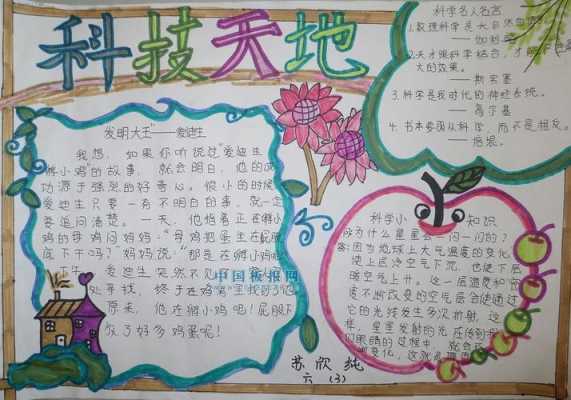 科技天地
发明大王"——爱迪生
我想,如果你听说过"爱迪生
孵小鸡"的故事,就会明白,他的成
功源于强烈的好奇心。很小的时候
爱迪生只要一有不明白的事,就一定
要追问清楚。一天,他指着正在孵小
鸡的母鸡问妈妈:"母鸡把蛋坐在屁股
底下干吗?"妈妈说:"那是在孵小鸡呢
下午,爱迪生突然不见
处寻找,终于在鸡窝里找到了他
原来,他在孵小鸡吧!屁股下
放了好多鸡蛋呢!
中国板报网
科学名人名言
1.数理科学是大自然
——伽利略
2.天才跟科学结合,才
大的效果。
——斯宾塞
3.科学是我时代的神经系统。
——高尔基
4.书本要围从科学,而不是相反。
——培根
科学小知识
为什么星星会一闪一闪的?
答:因为地球上大气温度的变化
使上层冷空气下沉,也使下层
暖空气上升。这一层温度和密
度不断改变的空气层会使通过
它的光线发生多次折射,这
样,星星发射的光在传到我
们眼睛的过程中,就会
变化,这就
苏欣纯
六(3)